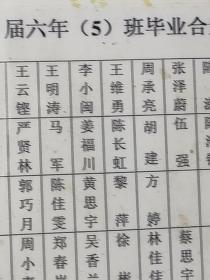 届六年（5）班毕业合
王云铿 王明涛 李小闽 王维勇 周承亮 张泽蔚
严贤林 马军 姜福川 陈长虹 胡建 伍强
郭巧月 陈佳雯 黄思宇 黎萍 方婷
周小 郑春 吴香 徐彬 林佳佳 蔡思宇